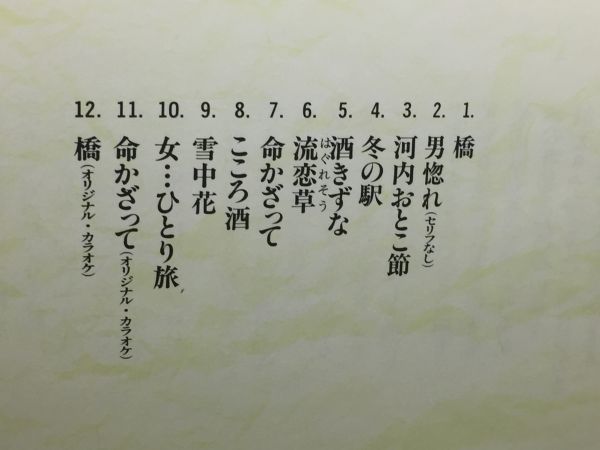 1. 橋
2. 男惚れ(セリフなし)
3. 河内おとこ節
4. 冬の駅
5. 酒きずな
6. 流恋草はぐれそう
7. 命かざって
8. こころ酒
9. 雪中花
10. 女…ひとり旅
11. 命かざって(オリジナル・カラオケ)
12. 橋(オリジナル・カラオケ)